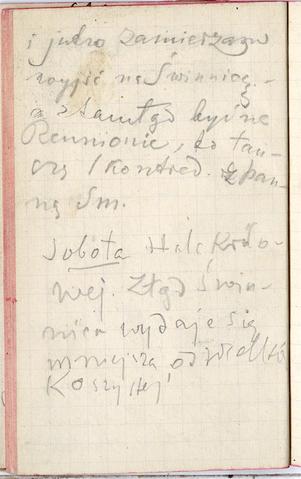 i jutro zamierzam
wyjść na Świnnicę. -
a stamtąd być na
Reunionie, bo tań-
czę I kontred. z pan-
ną Sm.
Sobota Hala Królo-
wej. Ztąd Świn-
nica wydaje się
mniejszą od
Koszystej!